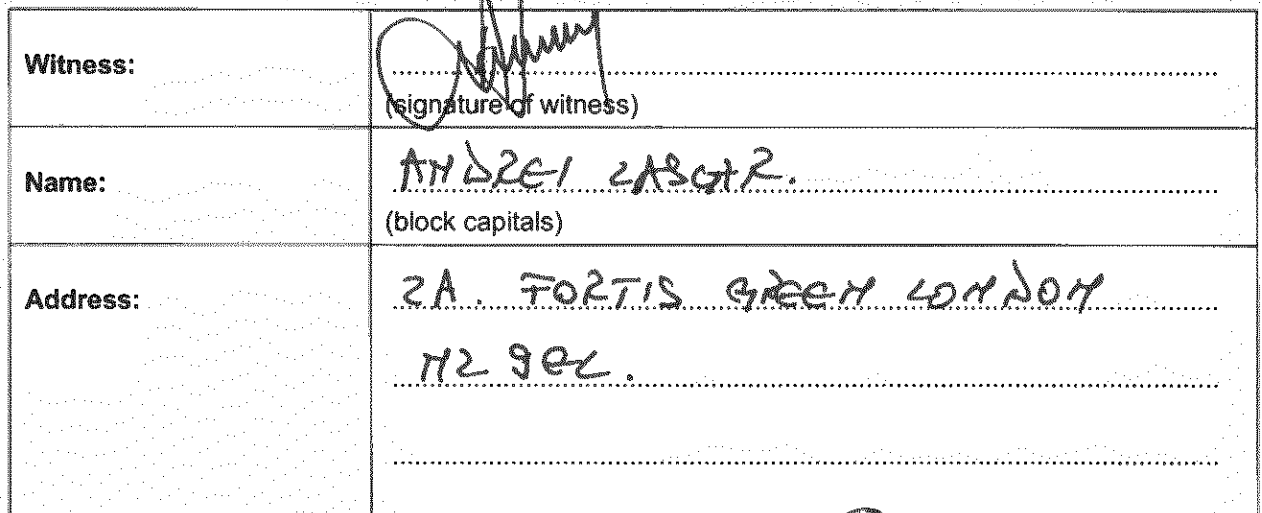 Witness:
(signature of witness)
Name:
ANDREI LASCAR.
(block capitals)
Address:
2A. FORTIS GREEN LONDON
N2 9EL.